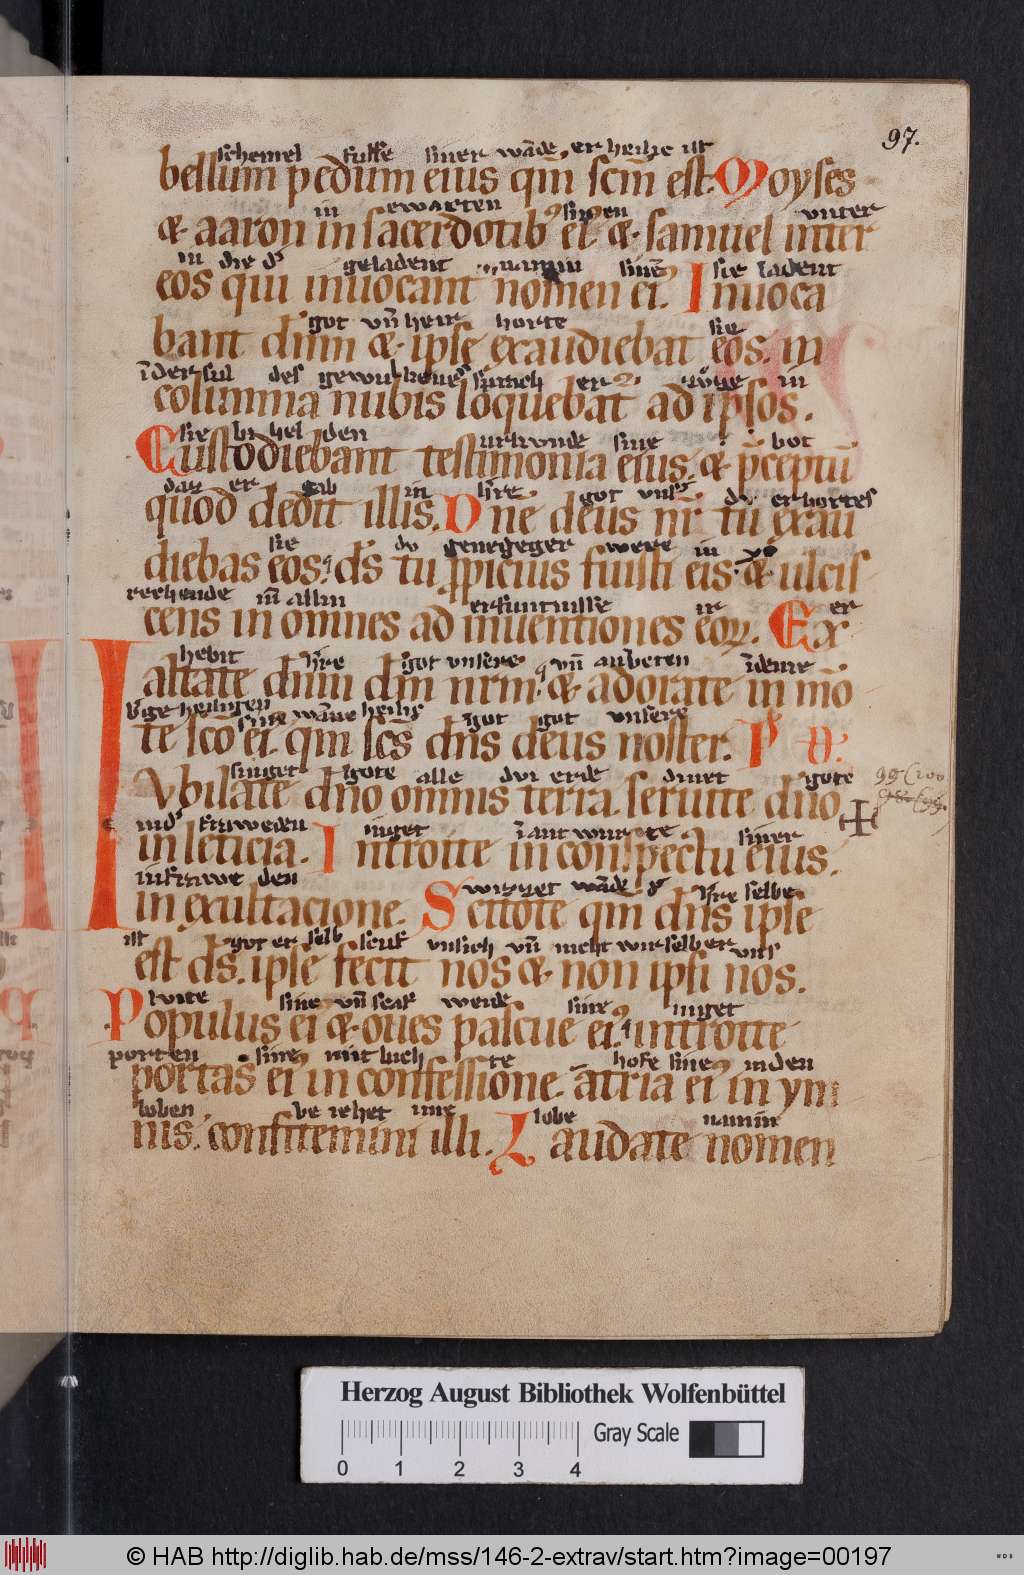 97.
schemel fusse siner wāde er heilic ist
bellum pedum eius qm̄ scm̄ est. Moyses
in ewarten sinen vnter
& aaron in sacerdotib9 ei9 & samuel inter
in die ds geladent namin sines sie ladent
eos qui inuocant nomen ei9. Inuoca
got vn̄ herr horte sie
bant dn̄m & ipse exaudiebat eos. in
īder sul des gewulkenes sprach er in
columna nubis loquebat ad ipsos.
sie bi hel den urkunde sine bot
Custodiebant testimonia eius. & p̄ceptū
daz er gab in h're got vnsˢ du erhortes
quod dedit illis. Dn̄e deus nr̄ tu exau
sie du genegeger were in
diebas eos. ds̄ tu ꝓpicius fuisti eis. & ulcis
rechende in allin erfuntnisse ir er
cens in omnes ad inuentiones eoꝝ. Ex
hebit h're got vnsere vn̄ anbeten īdeme
altate dn̄m dm̄ nrm̄. & adorate in mō
b'ge heiligen sime wāne heilis got got vnsere
te scō ei9. qm̄ scs̄ dn̄s deus noster. Ps
singet gote alle dvi erde dinet gote
Iubilate dn̄o omnis terra. seruite dn̄o
99 (100
ind' fruweden inget īant wurte siner
in leticia. Introite in conspectu eius.
infruwe den wizzet wāde d' h're selbe
in exultacione. Scitote qm̄ dn̄s ipse
ist got er selb scuf vnsich vn̄ nicht wir selber vns
est ds̄. ipse fecit nos & non ipsi nos.
lvite sines vn̄ scaf weide sines inget
Populus ei9 & oues pascue ei9. introite
porten sines mit buch te hofe sines inden
portas ei9 in confessione. atria ei9 in ym
loben ve iehet ime lobe namin
nis. confitemini illi. Laudate nomen
Herzog August Bibliothek Wolfenbüttel
Gray Scale
0 1 2 3 4
© HAB http://diglib.hab.de/mss/146-2-extrav/start.htm?image=00197